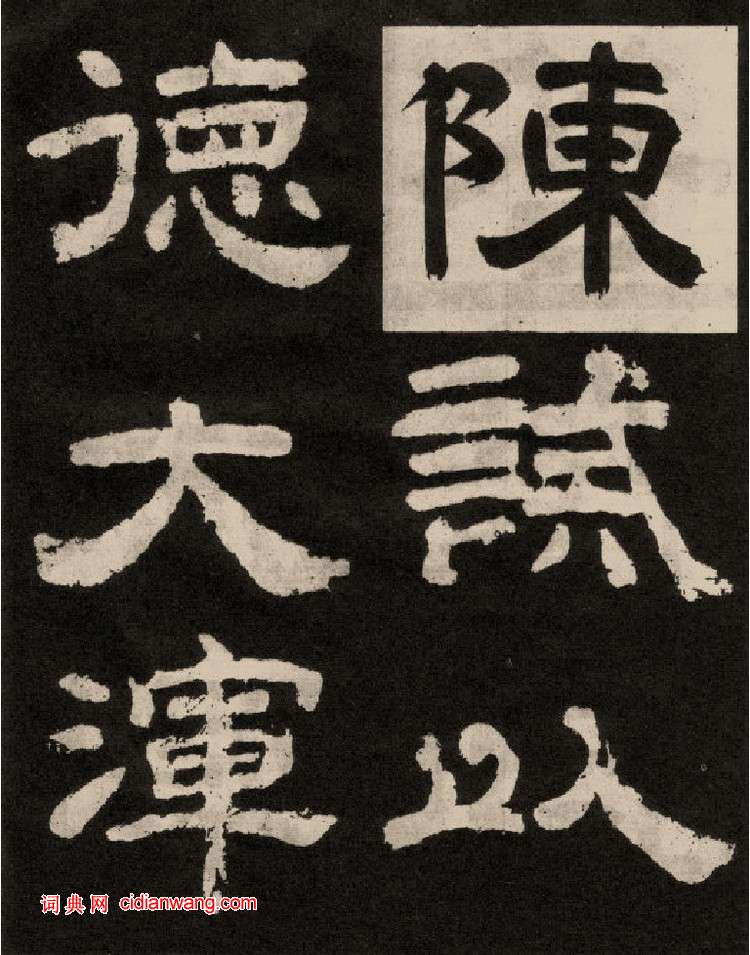 陳誡以
德大渾
词典网 cidianwang.com